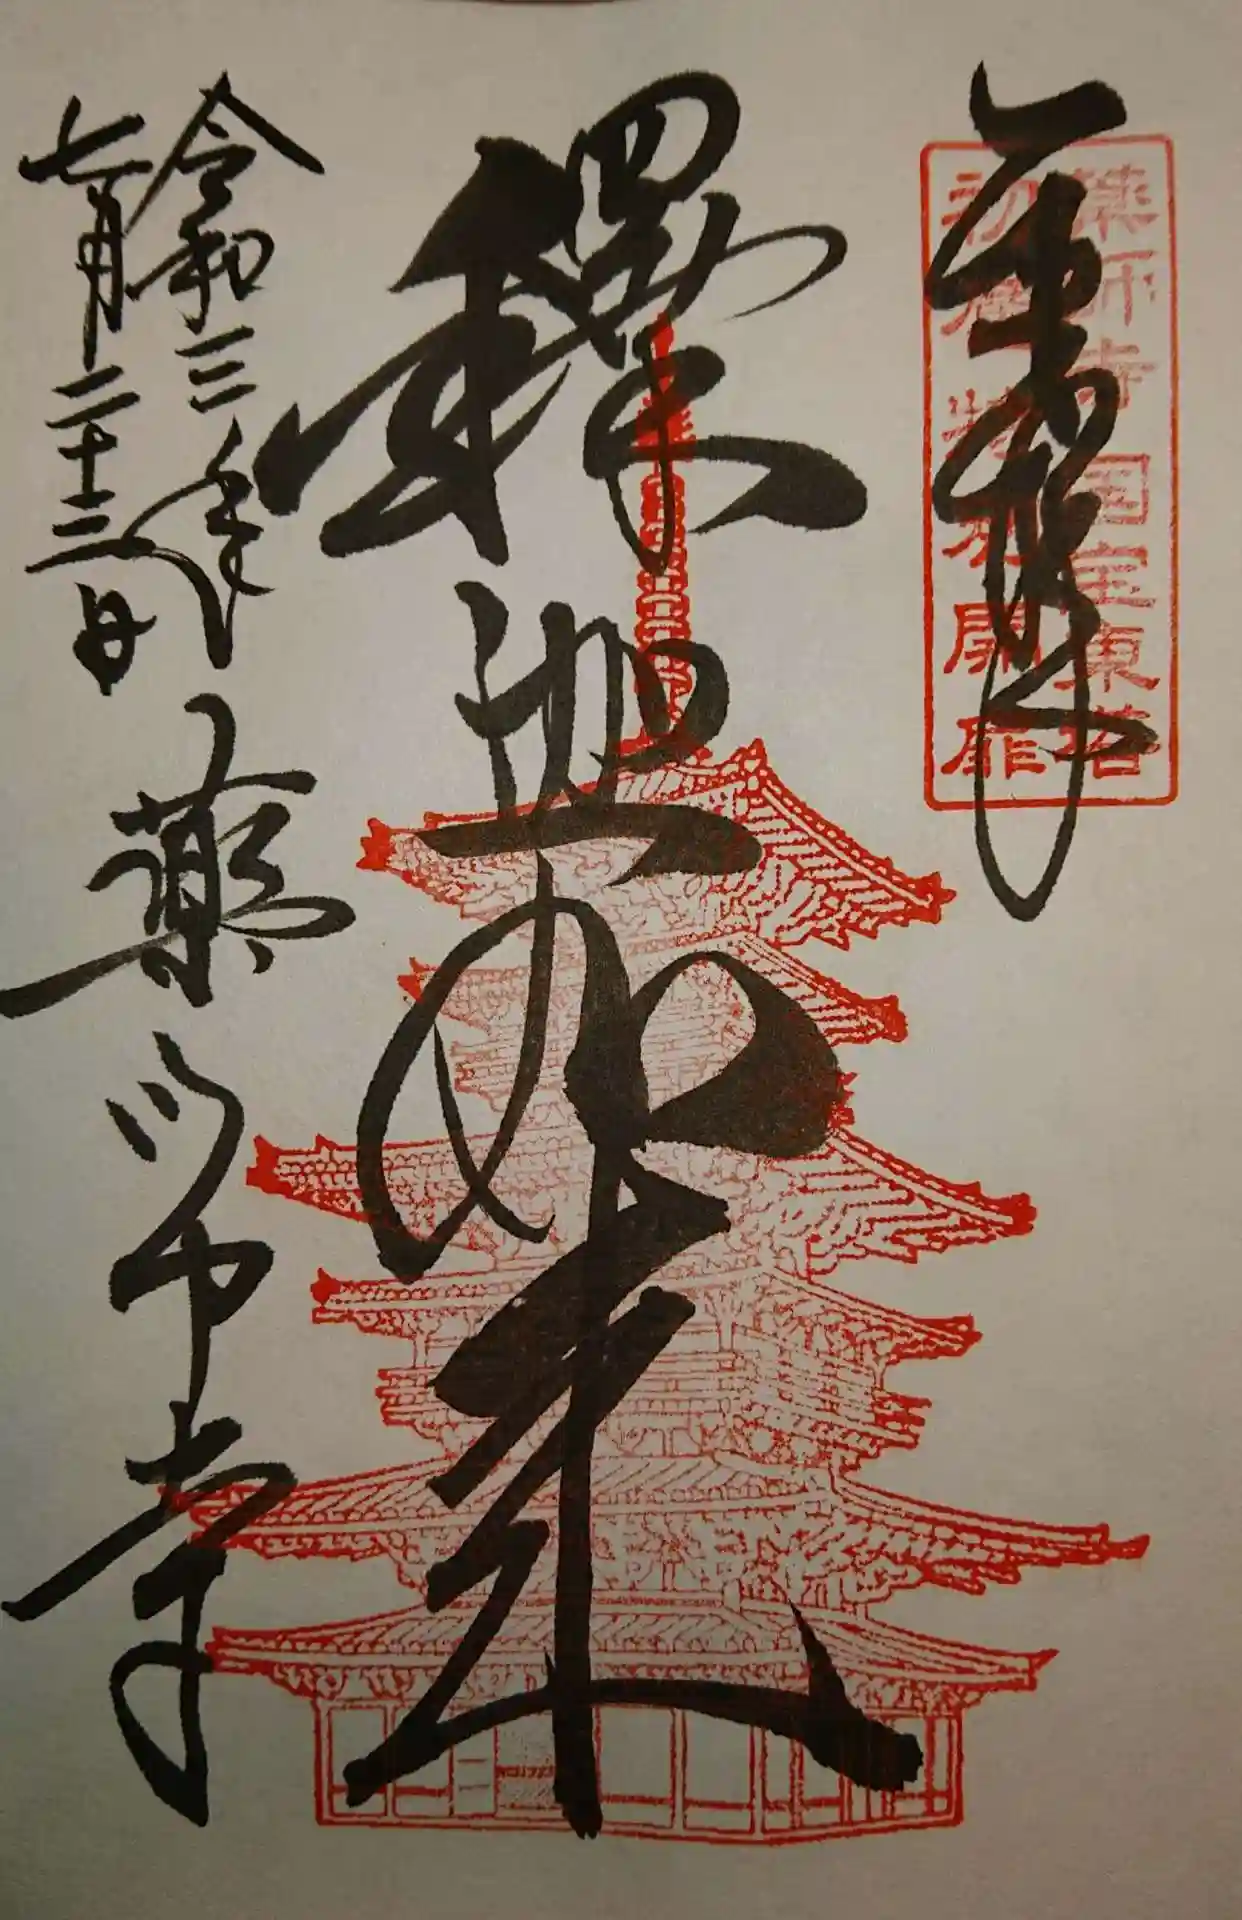 奉拝
薬師寺国宝東塔
初層特別開扉
釋迦如来
令和三年
七月二十三日
薬師寺